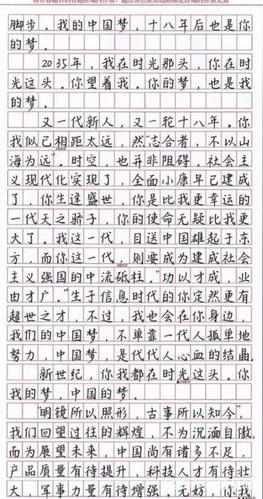 脚步，我的中国梦，十八年后也是你
的梦。
2035年，我在时光那头，你在时
光这头。你望着我。你的梦，也是我
的梦。
又一代新人，又一轮十八年。你
我似已相距太远，然“志合者，不以山
海为远”。时空，也并非阻碍，社会主
义现代化实现了，全面小康早已建成
了，你生逢盛世，你是比我更幸运的
一代天之骄子，你的使命无疑比我更
大了。我这一代，目送中国雄起于东
方，而你这一代，则要成为建成社会
主义强国的中流砥柱。“功以才成，业
由才广。”生于信息时代的你定然更有
超世之才，不过，我也会在你身边，
我们的中国梦，不单靠一代人孤单地
努力，中国梦，是代代人心血的结晶。
新世纪，你我都在时光这头。你
我的梦，中国的梦。
“明镜所以照形，古事所以知今”，
我们回望过往的辉煌，不为沉湎自傲，
而为展望未来，中国尚有诸多不足，
产品质量有待提升，科技人才有待壮
大，军事力量有待增强，无妨，你我